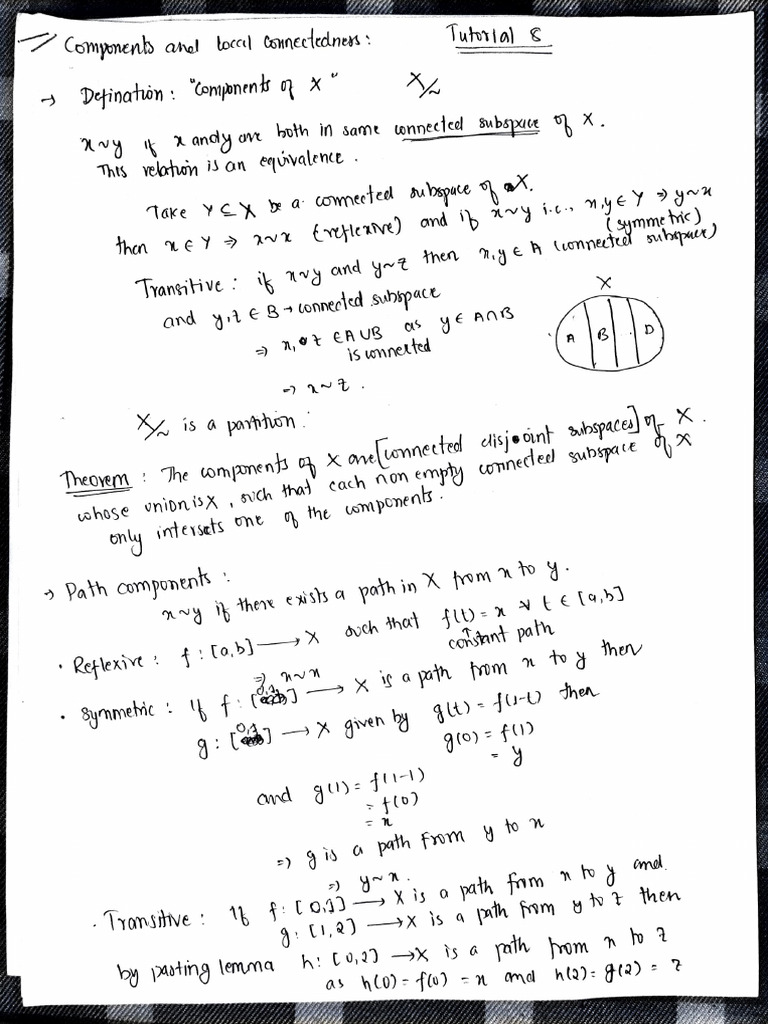 Components and local connectedness: Tutorial 8
→ Defination: "Components of X" X/~
x~y if x and y are both in same connected subspace of X.
This relation is an equivalence.
Take Y ⊆ X be a connected subspace of X.
then x ∈ Y ⇒ x~x (reflexive) and if x~y i.e., x,y ∈ Y ⇒ y~x
(symmetric)
Transitive: if x~y and y~z then x,y ∈ A (connected subspace)
and y,z ∈ B → connected subspace
X
⇒ x, z ∈ A∪B as y ∈ A∩B
is connected
A B D
⇒ x~z.
X/~ is a partition.
Theorem: The components of X are [connected disjoint subspaces] of X.
whose union is X, such that each non empty connected subspace of X
only intersets one of the components.
→ Path components:
x~y if there exists a path in X from x to y.
· Reflexive: f: [a,b] ⟶ X such that f(t) = x ∀ t ∈ [a,b]
↑
constant path
⇒ x~x
· Symmetric: If f: [0,1] ⟶ X is a path from x to y then
g: [0,1] ⟶ X given by g(t) = f(1-t) then
g(0) = f(1)
= y
and g(1) = f(1-1)
= f(0)
= x
⇒ g is a path from y to x
⇒ y~x.
· Transitive: If f: [0,1] ⟶ X is a path from x to y and
g: [1,2] ⟶ X is a path from y to z then
by pasting lemma h: [0,2] → X is a path from x to z
as h(0) = f(0) = x and h(2) = g(2) = z